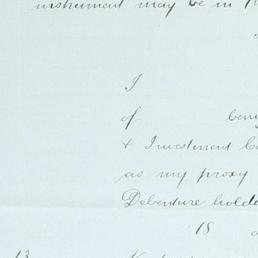 instrument may be in
I
of
& Investment
as my proxy
Debenture
18
13